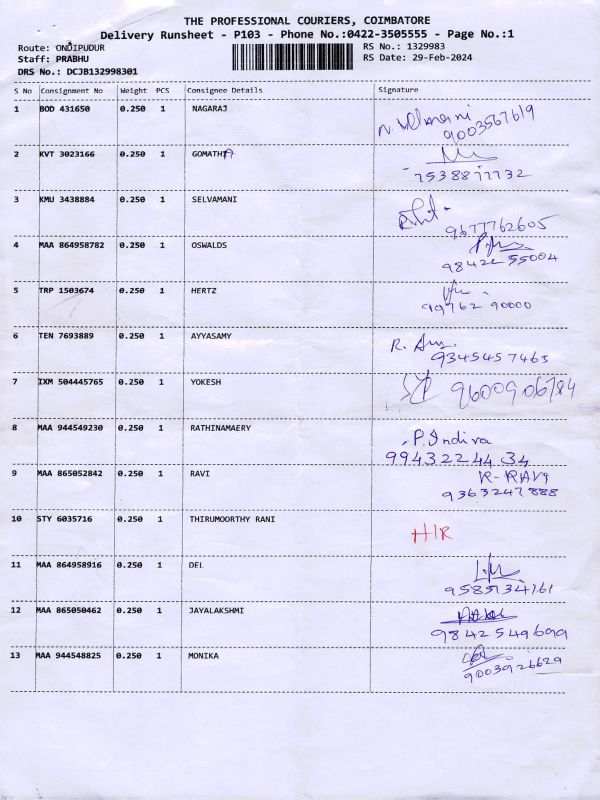 THE PROFESSIONAL COURIERS, COIMBATORE
Delivery Runsheet - P103 - Phone No.:0422-3505555 - Page No.:1
Route: ONDIPUDUR RS No.: 1329983
Staff: PRABHU RS Date: 29-Feb-2024
DRS No.: DCJB132998301
S No Consignment No Weight PCS Consignee Details Signature
1 BOD 431650 0.250 1 NAGARAJ
9003567619
2 KVT 3023166 0.250 1 GOMATHI
7538877732
3 KMU 3438884 0.250 1 SELVAMANI
9677762605
4 MAA 864958782 0.250 1 OSWALDS
98422 55004
5 TRP 1503674 0.250 1 HERTZ
99762 90000
6 TEN 7693889 0.250 1 AYYASAMY
9345457463
7 IXM 504445765 0.250 1 YOKESH 9600906784
8 MAA 944549230 0.250 1 RATHINAMAERY P. Indira
99432244 34
9 MAA 865052842 0.250 1 RAVI R- RAVI
9363247888
10 STY 6035716 0.250 1 THIRUMOORTHY RANI
HIR
11 MAA 864958916 0.250 1 DEL
9585134161
12 MAA 865050462 0.250 1 JAYALAKSHMI
9842549699
13 MAA 944548825 0.250 1 MONIKA
9003926629